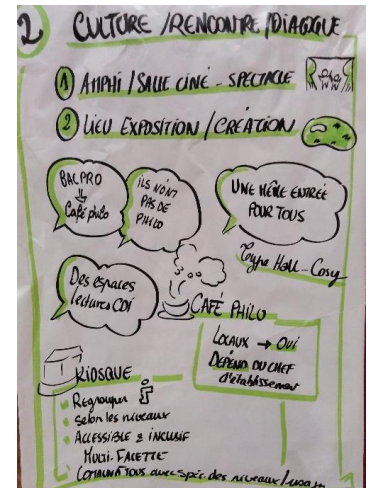 2 CULTURE / RENCONTRE / DIALOGUE
1 AMPHI / SALLE CINÉ - SPECTACLE
2 LIEU EXPOSITION / CRÉATION
BAC PRO
Café philo
ILS N'ONT
PAS DE
PHILO
UNE MÊME ENTRÉE
POUR TOUS
Type Hall - Cosy
Des espaces
lectures CDI
CAFÉ PHILO
LOCAUX → OUI
DÉPEND DU CHEF
d'établissement
KIOSQUE
Regrouper
selon les niveaux
ACCESSIBLE & INCLUSIF
MULTI-FACETTE
avec spéc. des niveaux /